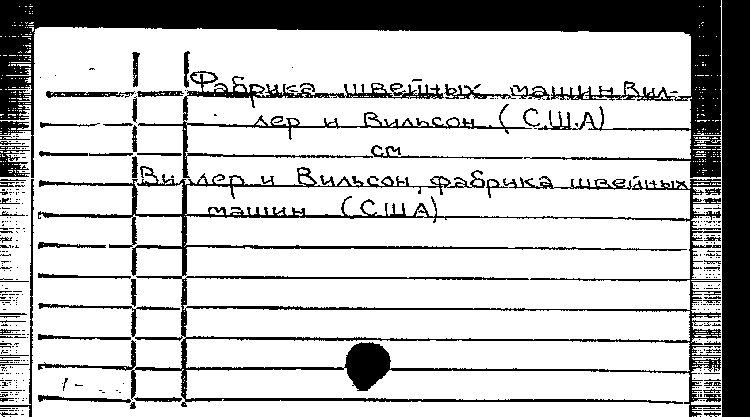 Фабрика швейных машин Вил-
лер и Вильсон (С.Ш.А)
см
Виллер и Вильсон, фабрика швейных
машин (США)